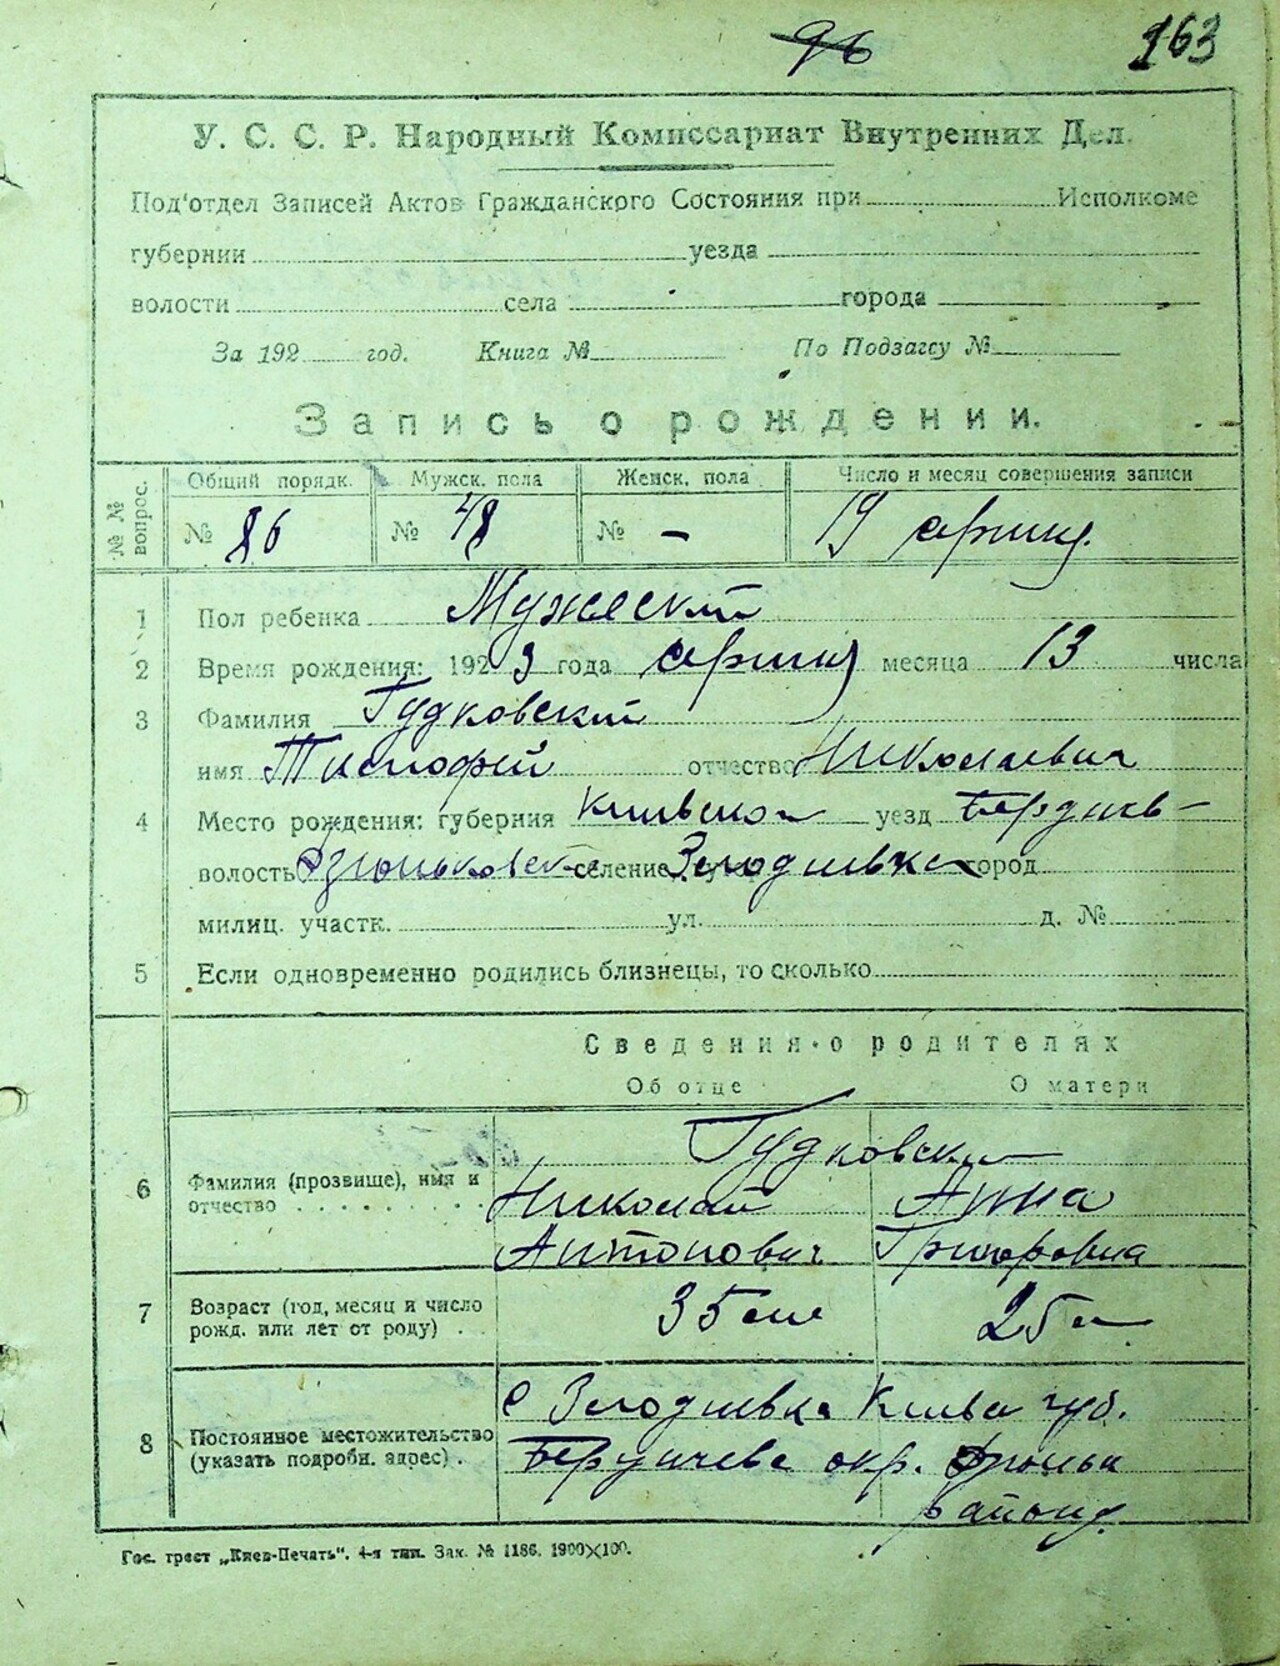 96 163
У. С. С. Р. Народный Комиссариат Внутренних Дел.
Под'отдел Записей Актов Гражданского Состояния при Исполкоме
губернии уезда
волости села города
За 192 год. Книга № По Подзагсу №
Запись о рождении.
№ № вопрос. Общий порядк. Мужск. пола Женск. пола Число и месяц совершения записи
№ 86 № 48 № - 19 серпня
1 Пол ребенка Мужеский
2 Время рождения: 1923 года серпня месяца 13 числа
3 Фамилия Гудковский
имя Тимофей отчество Николаевич
4 Место рождения: губерния Киевской уезд Бердичев-
волость селение город
милиц. участк. ул. д. №
5 Если одновременно родились близнецы, то сколько
Сведения о родителях
Об отце О матери
Гудковски
6 Фамилия (прозвище), имя и отчество Николай Анна
Антонович Григоровна
7 Возраст (год, месяц и число рожд. или лет от роду) 35 25
8 Постоянное местожительство (указать подробн. адрес) с губ.
окр.
району
Гос. трест „Киев-Печать". 4-я тип. Зак. № 1186. 1900×100.